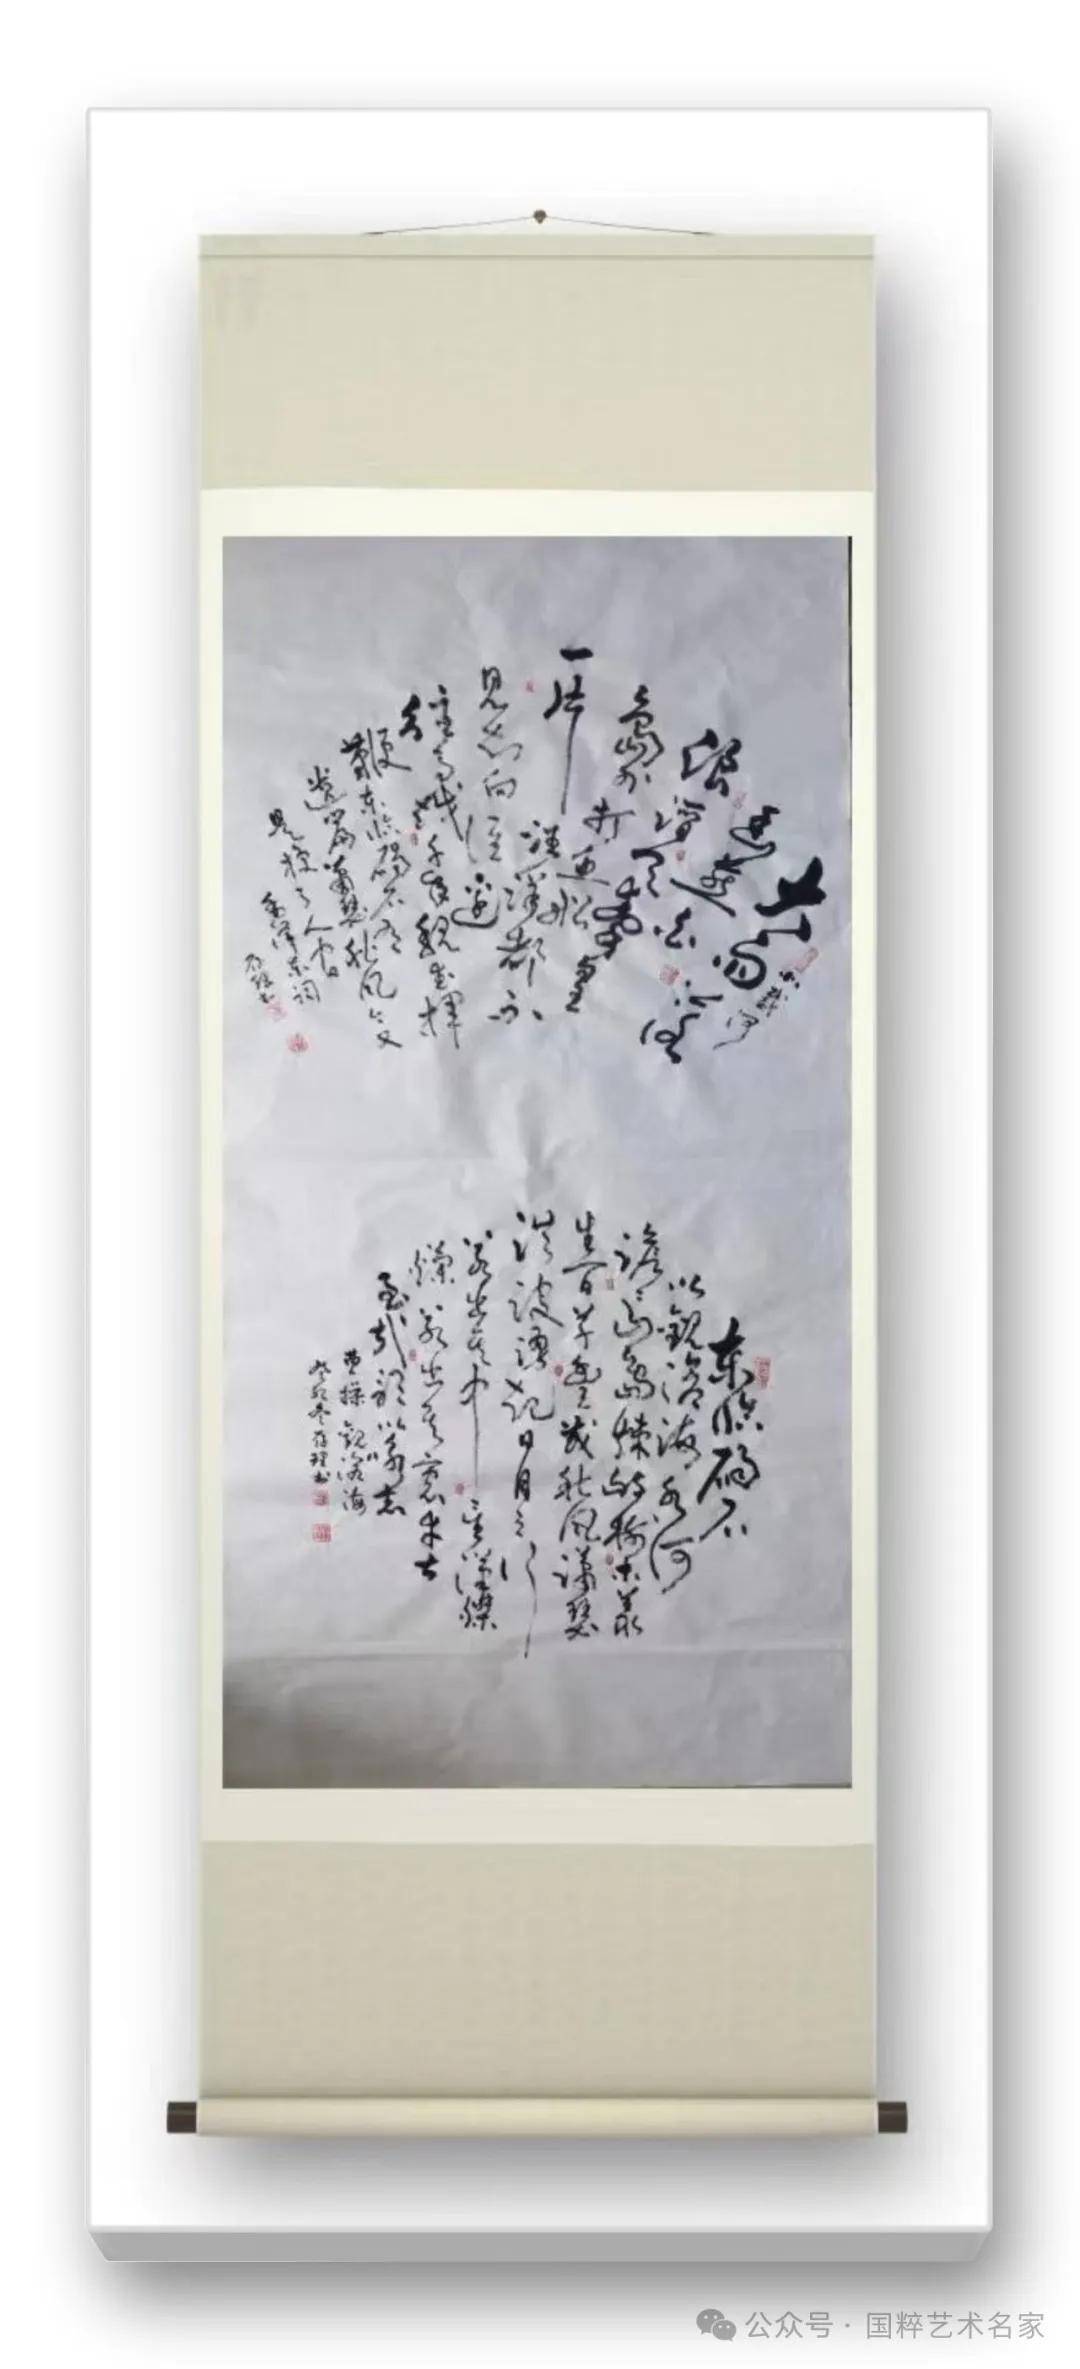 大雨落
幽燕白
浪滔天秦皇
岛外打鱼船
一片汪洋都不
见知向谁边
往事越千年魏武挥
鞭东临碣石有
遗篇萧瑟秋风今又
是换了人间
毛泽东词
东临碣石
以觀沧海水何
澹澹山岛竦峙树木丛
生百草豐茂秋风萧瑟
洪波涌起日月之行
若出其中星漢燦
爛若出其裏幸甚
至哉歌以咏志
曹操觀沧海
公众号 · 国粹艺术名家